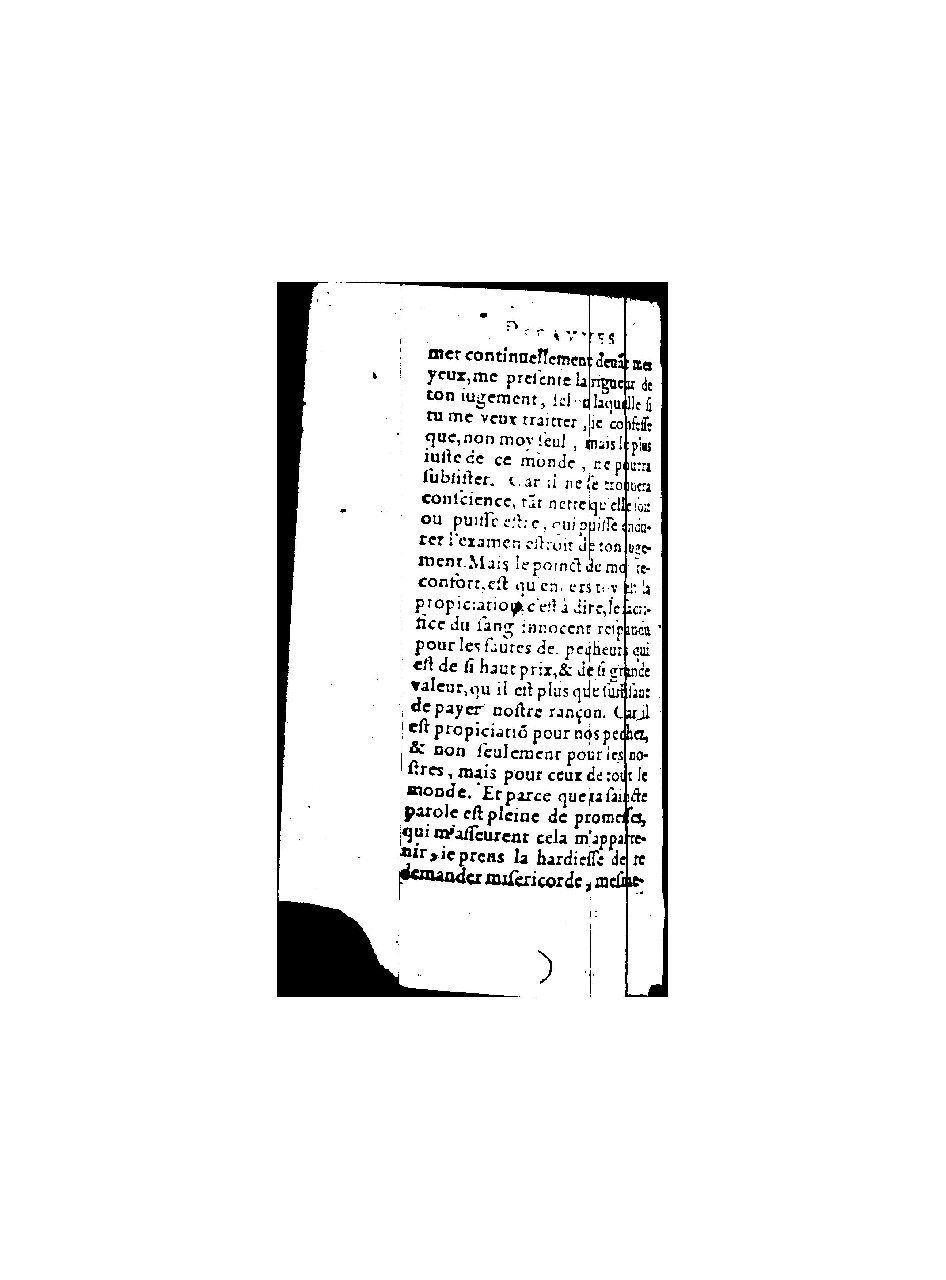 met continuellement deuãt mes
yeux, me preſente la rigueur de
ton iugement, ſelon laquelle ſi
tu me veux traitter, ie confeſſe
que, non moy ſeul, mais le plus
iuſte de ce monde, ne pourra
ſubſiſter. Car il ne ſe trouuera
conſcience, tãt nette qu'elle ſoit
ou puiſſe eſtre, qui puiſſe endu-
rer l'examen eſtroit de ton iuge-
ment. Mais le poinct de mon re-
confort, eſt qu'enuers toy eſt la
propiciation, c'eſt à dire, le ſacri-
fice du ſang innocent reſpandu
pour les fautes des pecheurs qui
eſt de ſi haut prix, & de ſi grande
valeur, qu'il eſt plus que ſuffiſant
de payer noſtre rançon. Car il
eſt propiciatiõ pour nos pechez,
& non ſeulement pour les no-
ſtres, mais pour ceux de tout le
monde. Et parce que ta ſaincte
parole eſt pleine de promeſſes,
qui m'aſſeurent cela m'apparte-
nir, ie prens la hardieſſe de te
demander miſericorde, meſme-